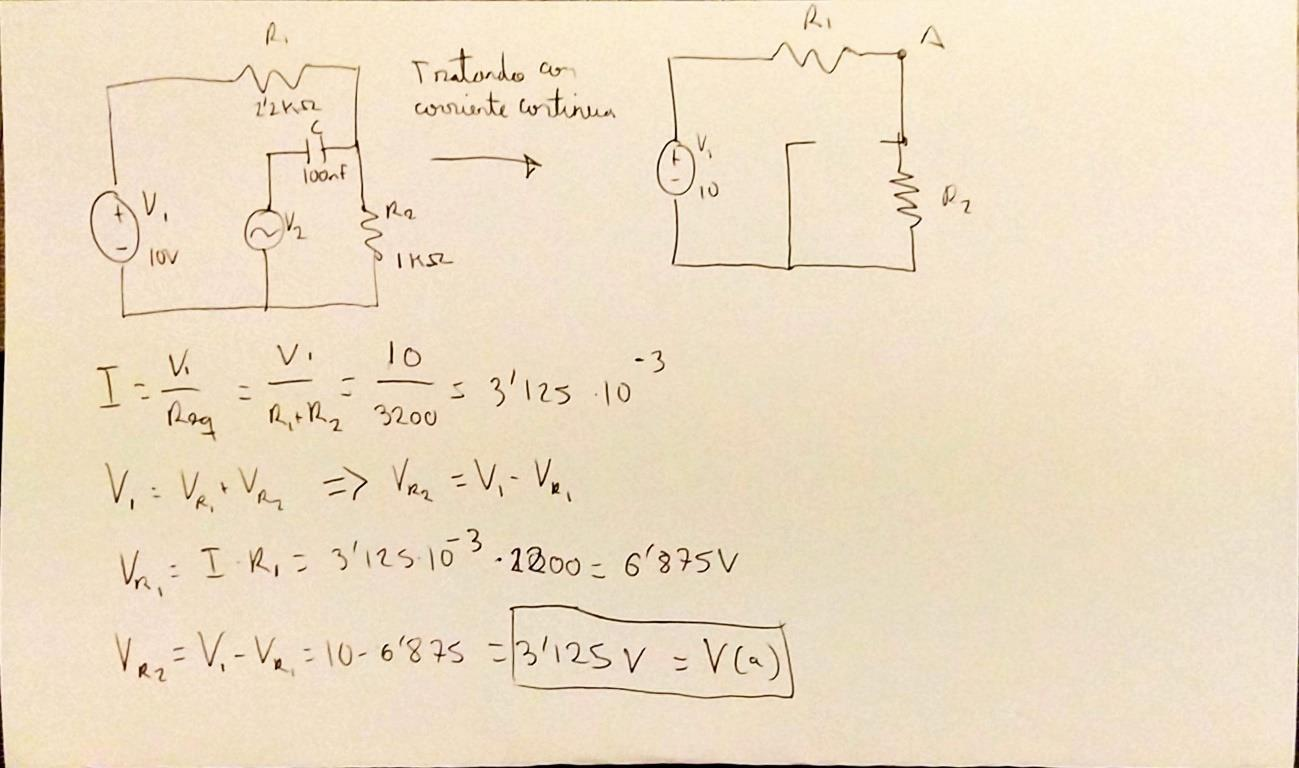 R₁
2'2KΩ
C
100nF
V₁
10V
V₂
R₂
1KΩ
Tratando con
corriente continua
R₁
A
V₁
10
R₂
I = V₁/Req = V₁/(R₁+R₂) = 10/3200 = 3'125 · 10⁻³
V₁ = V_R₁ + V_R₂ => V_R₂ = V₁ - V_R₁
V_R₁ = I · R₁ = 3'125 · 10⁻³ · 2200 = 6'875V
V_R₂ = V₁ - V_R₁ = 10 - 6'875 = 3'125 V = V(a)